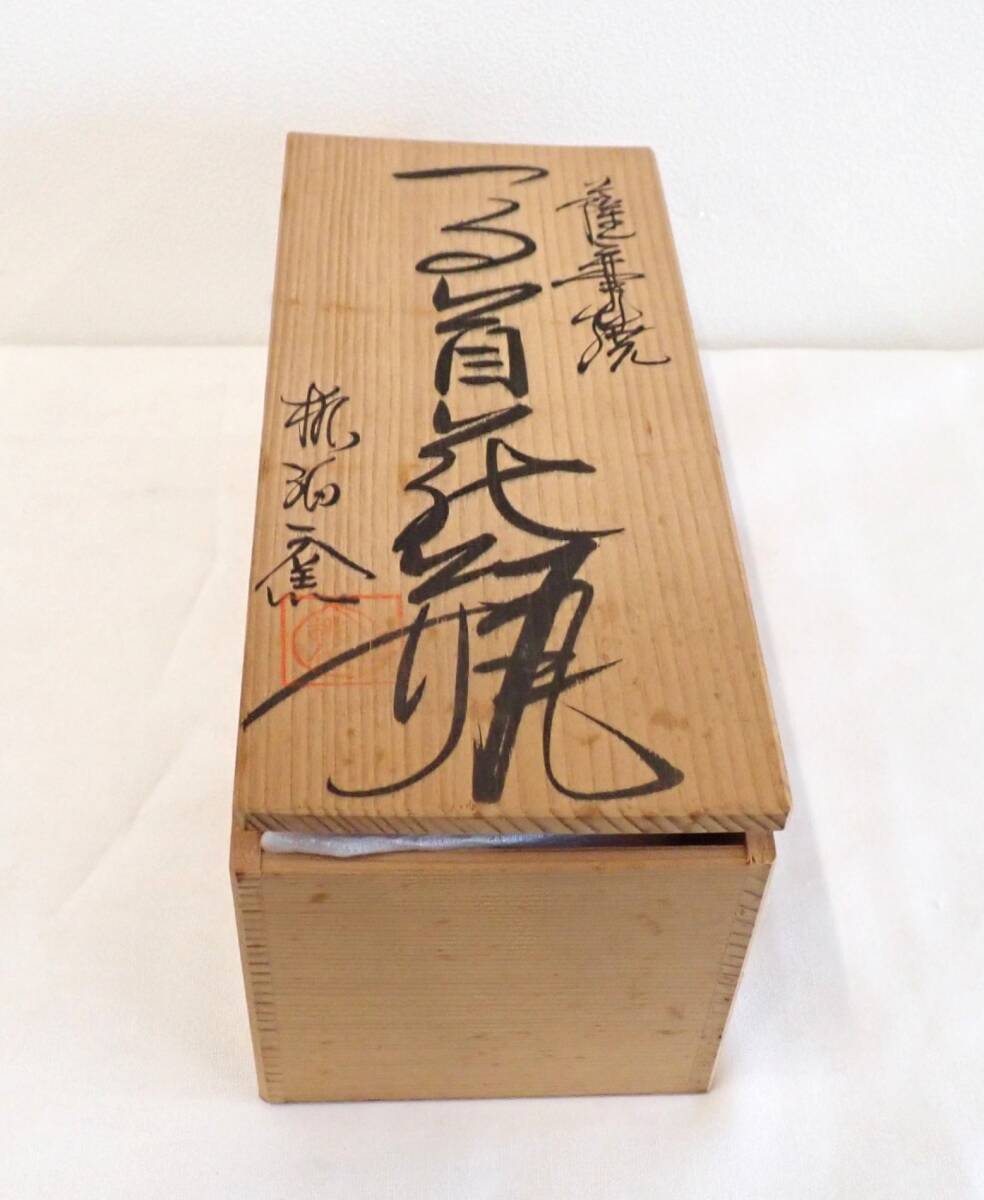 薩摩焼
つる首花瓶
窯